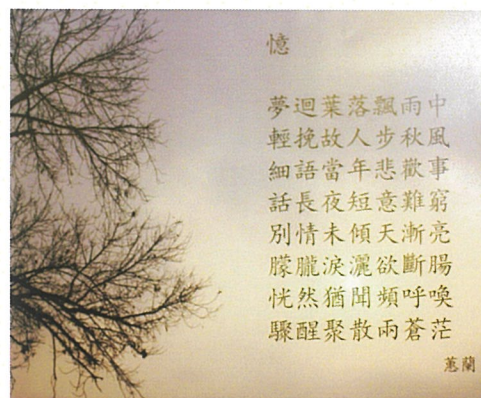 憶
夢迴葉落飄雨中
輕挽故人步秋風
細語當年悲歡事
話長夜短意難窮
別情未傾天漸亮
朦朧淚灑欲斷腸
恍然猶聞頻呼喚
驟醒聚散兩蒼茫
蕙蘭